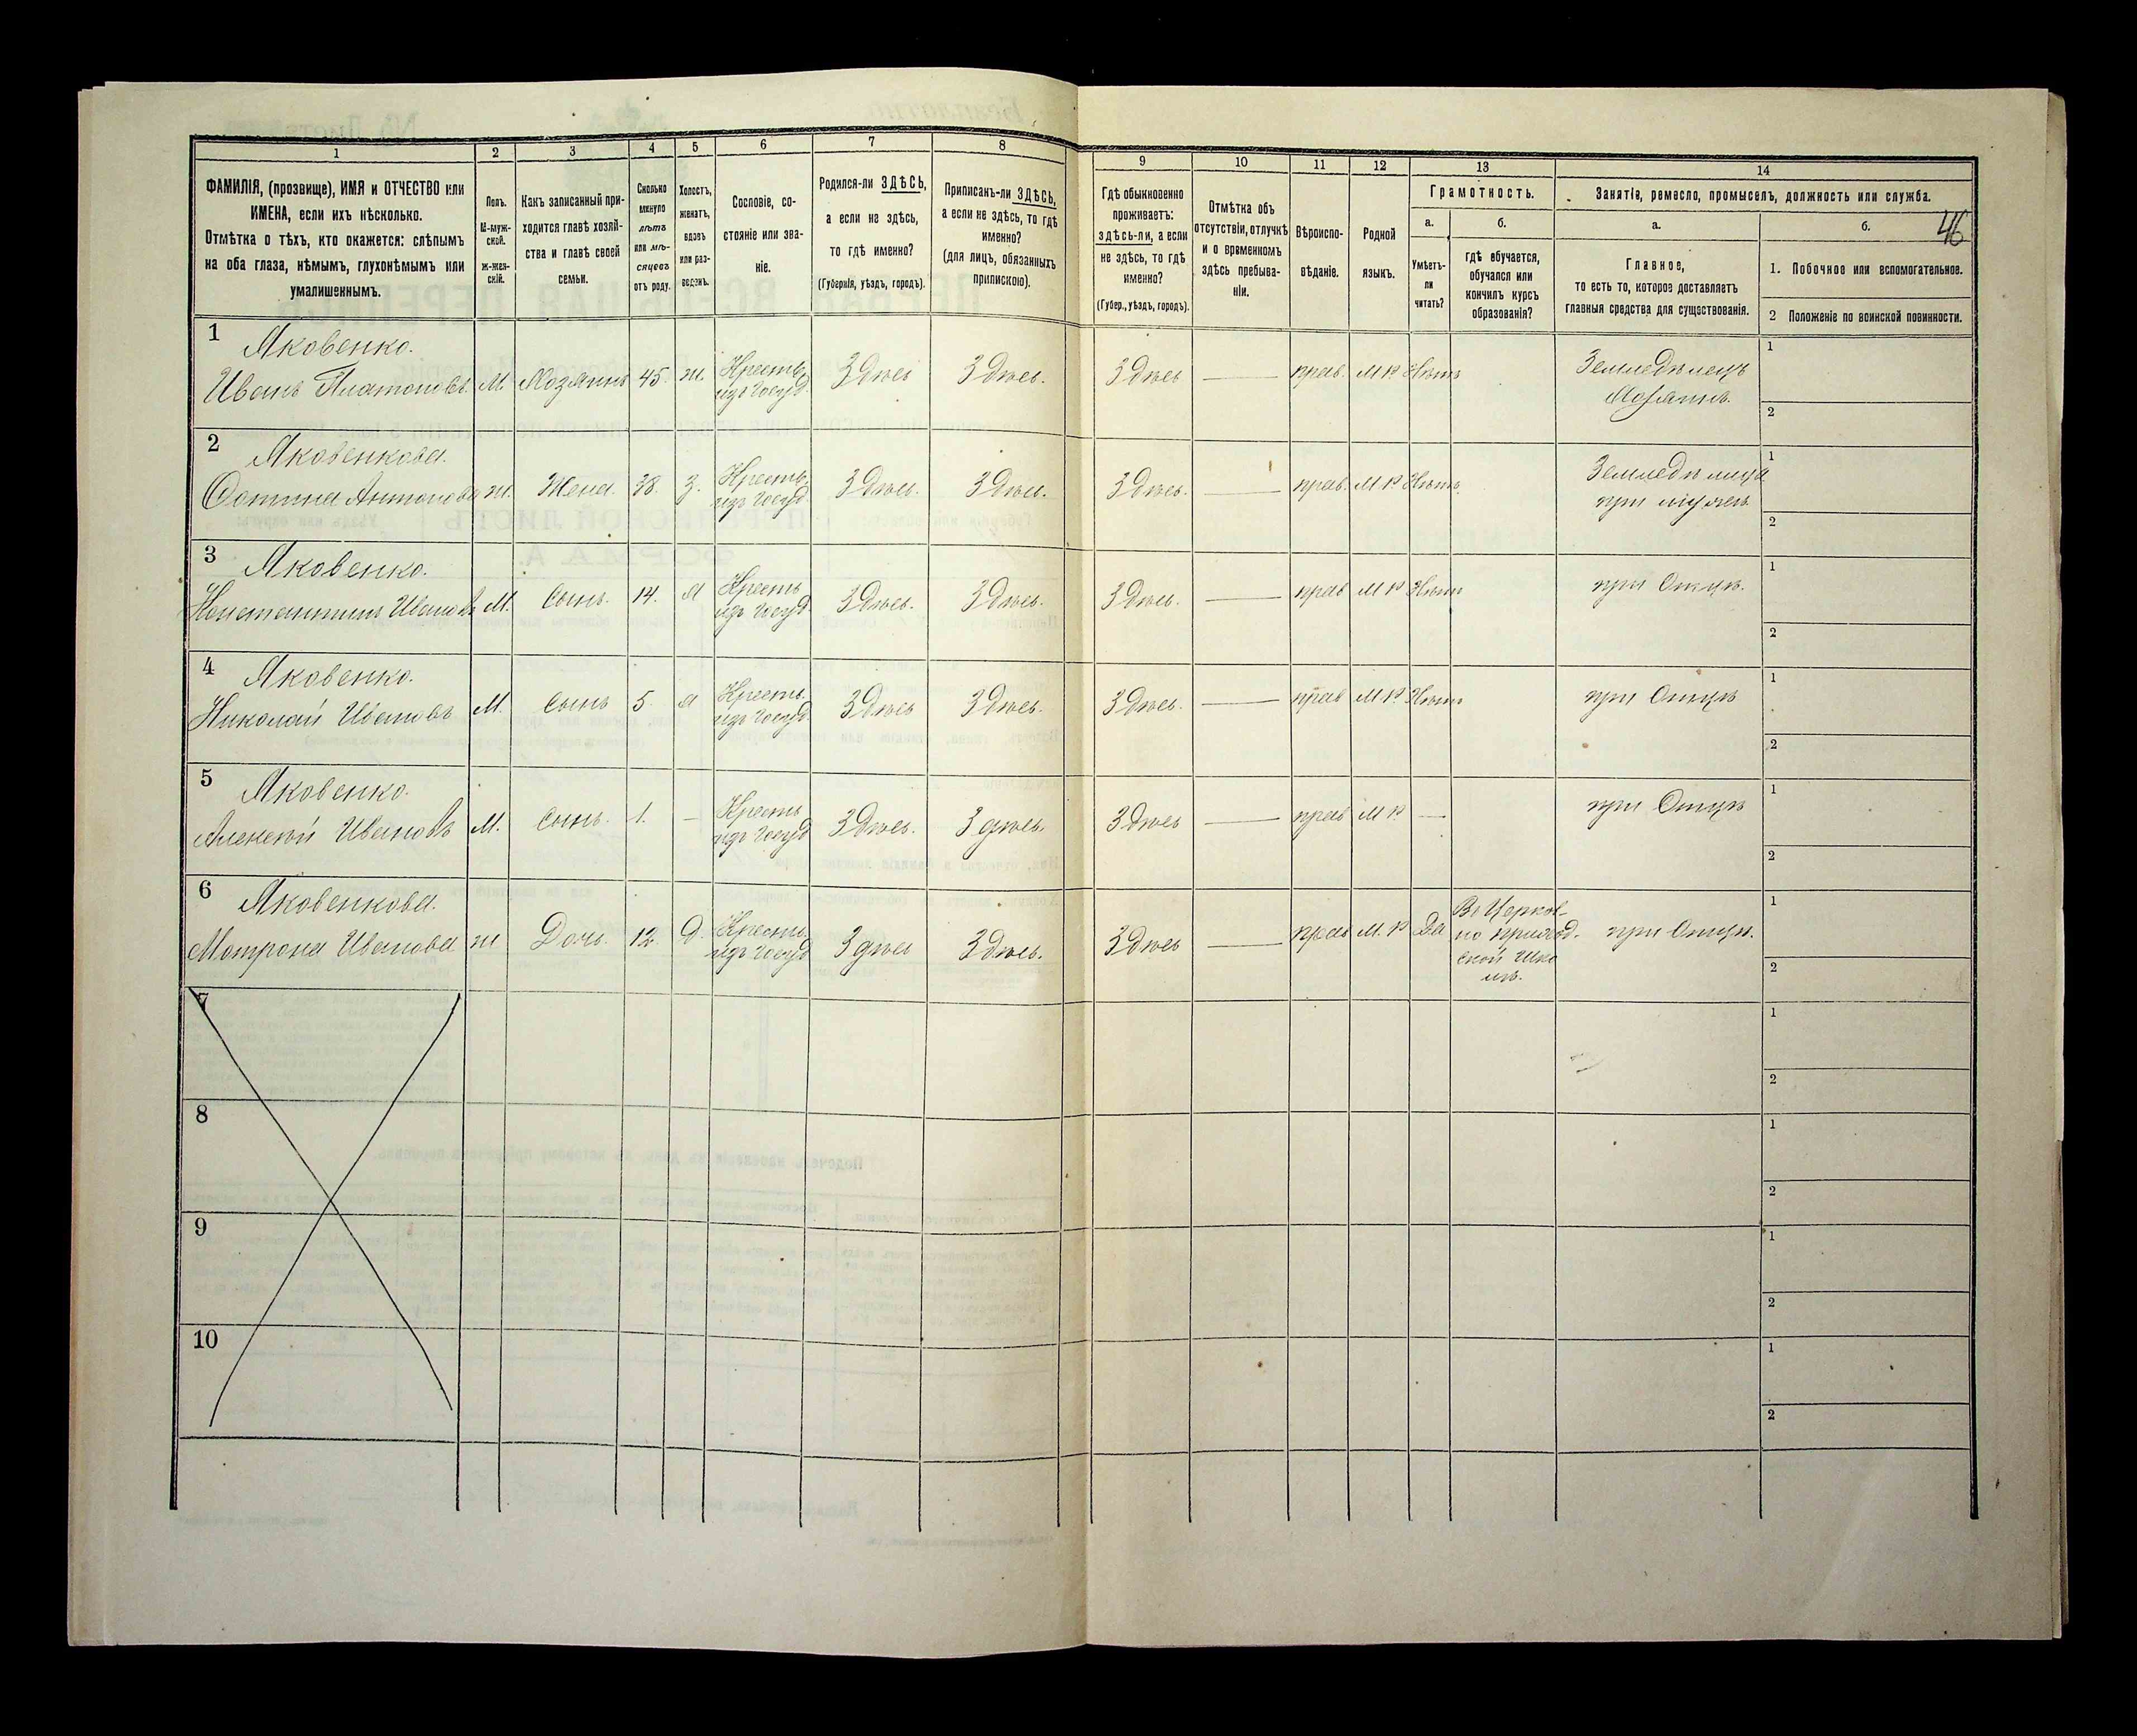 46
1 2 3 4 5 6 7 8 9 10 11 12 13 14
ФАМИЛІЯ, (прозвище), ИМЯ и ОТЧЕСТВО или
ИМЕНА, если ихъ нѣсколько.
Отмѣтка о тѣхъ, кто окажется: слѣпымъ
на оба глаза, нѣмымъ, глухонѣмымъ или
умалишеннымъ.
Полъ.
М-муж-
ской.
Ж-жен-
скій.
Какъ записанный при-
ходится главѣ хозяй-
ства и главѣ своей
семьи.
Сколько
минуло
лѣтъ
или мѣ-
сяцевъ
отъ роду.
Холостъ,
женатъ,
вдовъ
или раз-
веденъ.
Сословіе, со-
стояніе или зва-
ніе.
Родился-ли ЗДѢСЬ,
а если не здѣсь,
то гдѣ именно?
(Губернія, уѣздъ, городъ).
Приписанъ-ли ЗДѢСЬ,
а если не здѣсь, то гдѣ
именно?
(для лицъ, обязанныхъ
припискою).
Гдѣ обыкновенно
проживаетъ:
здѣсь-ли, а если
не здѣсь, то гдѣ
именно?
(Губер., уѣздъ, городъ).
Отмѣтка объ
отсутствіи, отлучкѣ
и о временномъ
здѣсь пребыва-
ніи.
Вѣроиспо-
вѣданіе.
Родной
языкъ.
Грамотность.
а.
Умѣетъ-
ли
читать?
б.
гдѣ обучается,
обучался или
кончилъ курсъ
образованія?
Занятіе, ремесло, промыселъ, должность или служба.
а.
Главное,
то есть то, которое доставляетъ
главныя средства для существованія.
б.
1. Побочное или вспомогательное.
2 Положеніе по воинской повинности.
1 Яковенко.
Иванъ Платоновъ. М. Хозяинъ 45. ж. Кресть. Здѣсь Здѣсь. Здѣсь — прав. М Р. Нѣтъ Земледѣлецъ 1
изъ Госуд. Хозяинъ. 2
2 Яковенкова.
Устина Антонова ж. Жена. 38. З. Кресть. Здѣсь. Здѣсь. Здѣсь. — прав. М Р Нѣтъ Земледѣлица 1
изъ Госуд при мужѣ 2
3 Яковенко.
Константинъ Ивановъ М. Сынъ. 14. Х Кресть Здѣсь. Здѣсь. Здѣсь. — прав М Р Нѣтъ при Отцѣ. 1
изъ Госуд 2
4 Яковенко.
Николай Ивановъ М. Сынъ 5. Х Кресть. Здѣсь Здѣсь. Здѣсь. — прав М Р. Нѣтъ при Отцѣ 1
изъ Госуд. 2
5 Яковенко.
Алексѣй Ивановъ М. Сынъ. 1. — Кресть Здѣсь. Здѣсь. Здѣсь — прав М Р. — при Отцѣ 1
изъ Госуд 2
6 Яковенкова.
Матрона Иванова ж Дочь. 12. Д. Кресть. Здѣсь Здѣсь. Здѣсь — прав М. Р Да Въ Церков- при Отцѣ. 1
изъ Госуд но приход-
ской шко
лѣ. 2
7 1
2
8 1
2
9 1
2
10 1
2